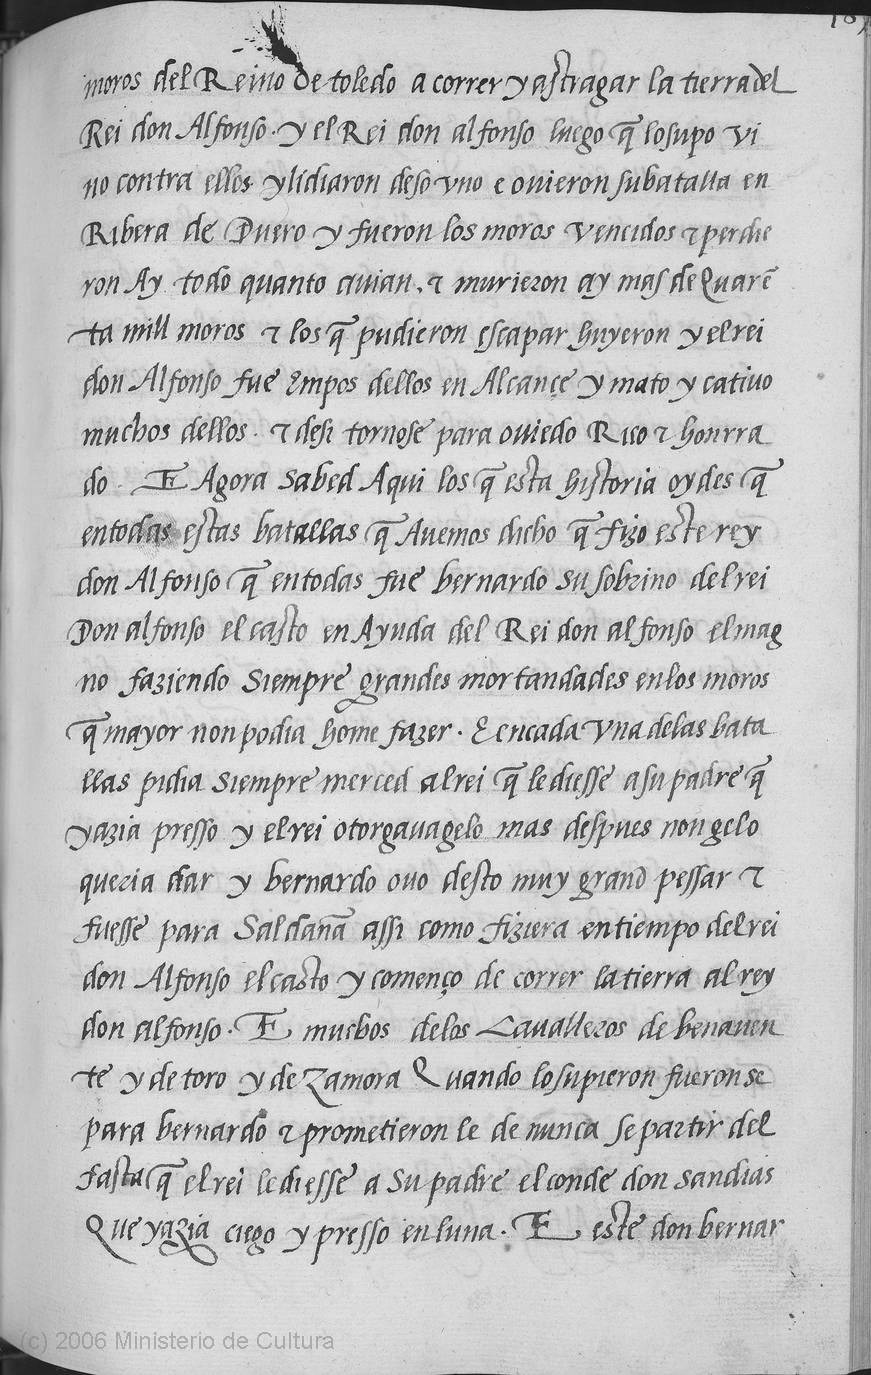 moros del Reino de toledo a correr y astragar la tierra del
Rei don Alfonso. y el Rei don alfonso luego q̃ lo supo vi
no contra ellos y lidiaron deso vno e ovieron su batalla en
Ribera de Duero y fueron los moros vencidos & perdie
ron Ay todo quanto avian, & murieron ay mas de Quarẽ
ta mill moros & los q̃ pudieron escapar huyeron y el rei
don Alfonso fue Empos dellos en Alcançe y mato y cativo
muchos dellos. & desi tornose para oviedo Rico & honrra
do. E Agora sabed Aqui los q̃ esta historia oydes q̃
en todas estas batallas q̃ Auemos dicho q̃ fizo este rey
don Alfonso q̃ en todas fue bernardo su sobrino del rei
Don alfonso el casto en Ayuda del Rei don alfonso el mag
no faziendo siempre grandes mortandades en los moros
q̃ mayor non podia home fazer. E en cada vna de las bata
llas pidia siempre merced al rei q̃ le diesse a su padre q̃
yazia presso y el rei otorgavagelo mas despues non gelo
queria dar y bernardo ovo desto muy grand pessar &
fuesse para Saldaña assi como fiziera en tiempo del rei
don Alfonso el casto y començo de correr la tierra al rey
don alfonso. E muchos de los Cavalleros de benaven
te y de toro y de Zamora Quando lo supieron fueronse
para bernardo & prometieron le de nunca se partir del
fasta q̃ el rei le diesse a su padre el conde don sandias
Que yazia ciego y presso en luna. E este don bernar
(c) 2006 Ministerio de Cultura